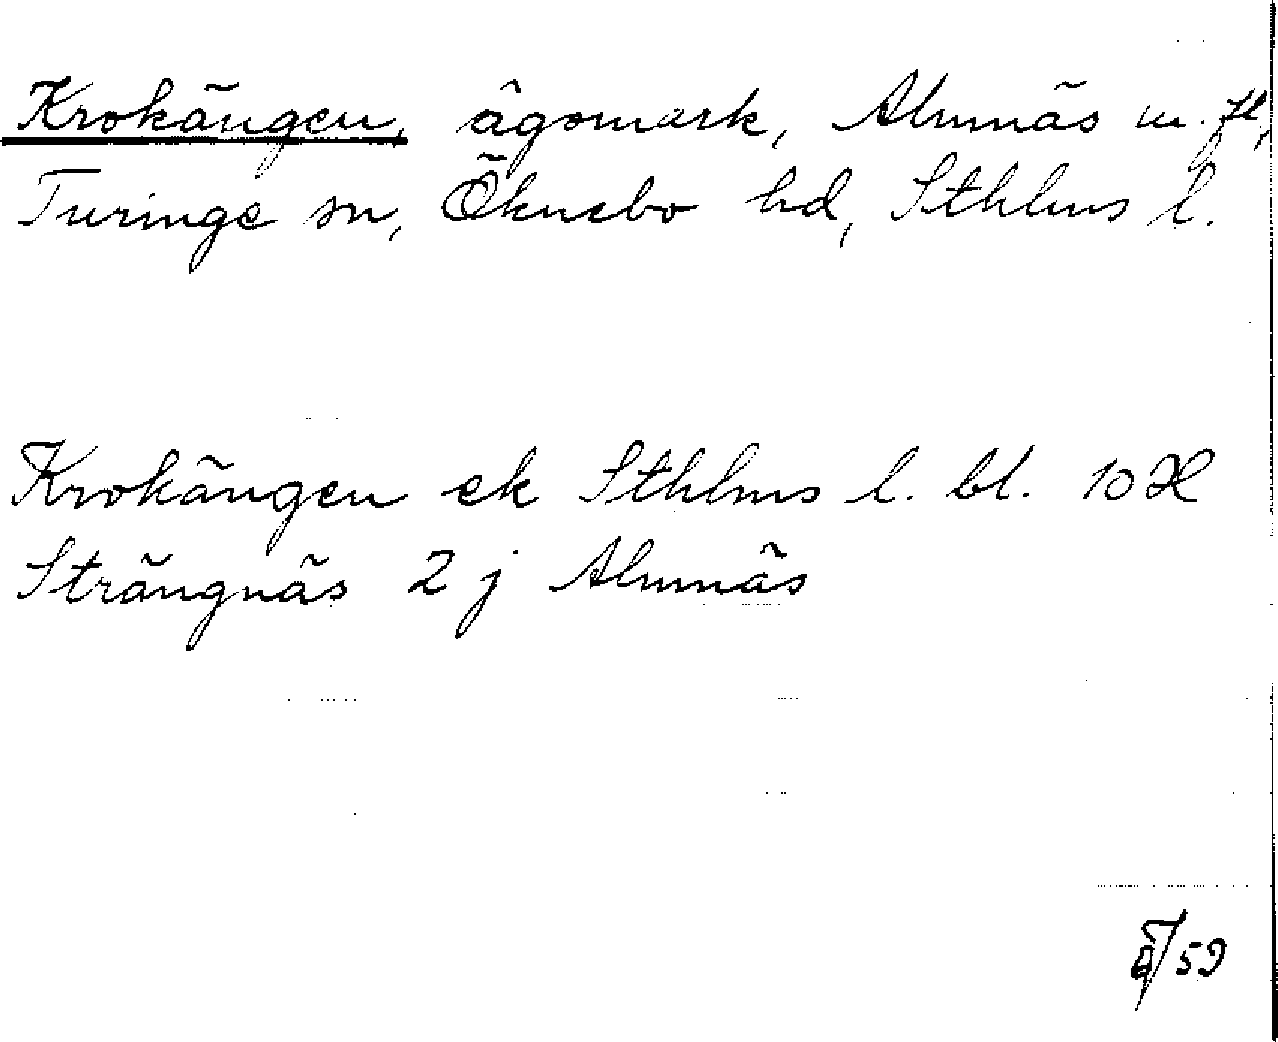 Krokängen, ägomark, Almnäs m. fl,
Turinge sn, Öknebo hd, Sthlms l.
Krokängen ek Sthlms l. bl. 10 H
Strängnäs 2 j Almnäs
/59